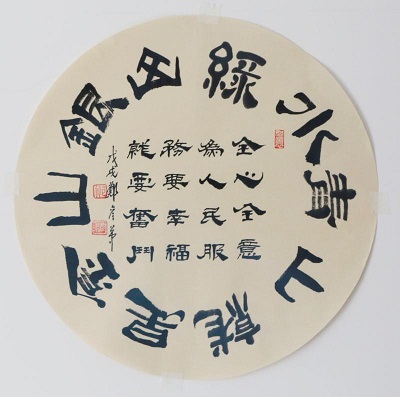 綠水青山就是金山銀山
全心全意
為人民服
務要幸福
就要奮鬥
戊戌鄭